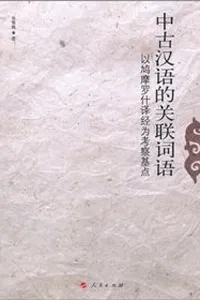 中古汉语的关联词语
以鸠摩罗什译经为考察基点
人民出版社